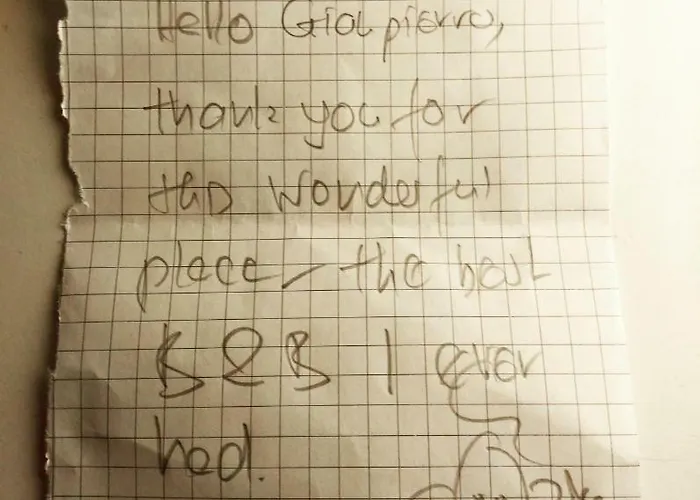 Hello Gianpierro,
thank you for
this wonderful
place – the best
B&B I ever
had.